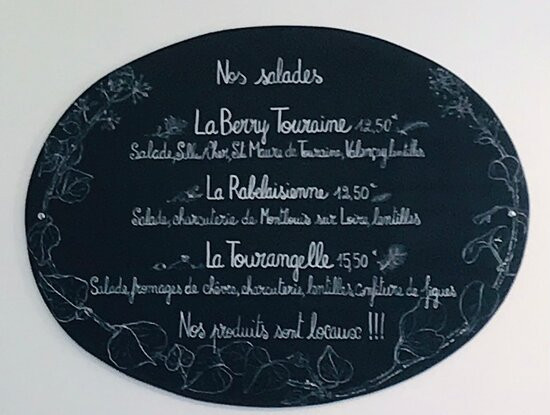 Nos salades
La Berry Touraine 12,50€
Salade, Selles/Cher, St Maure de Touraine, Valençay, lentilles
La Rabelaisienne 12,50€
Salade, charcuterie de Montlouis sur Loire, lentilles
La Tourangelle 15,50€
Salade, fromages de chèvre, charcuterie, lentilles, confiture de figues
Nos produits sont locaux !!!